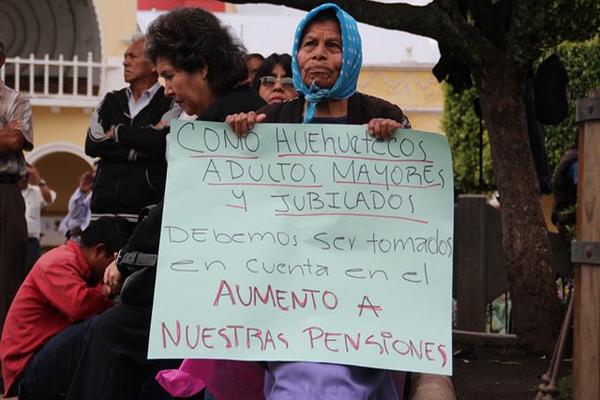 COMO HUEHUETOCOS
ADULTOS MAYORES
Y JUBILADOS
DEBEMOS SER TOMADOS
EN CUENTA EN EL
AUMENTO A
NUESTRAS PENSIONES